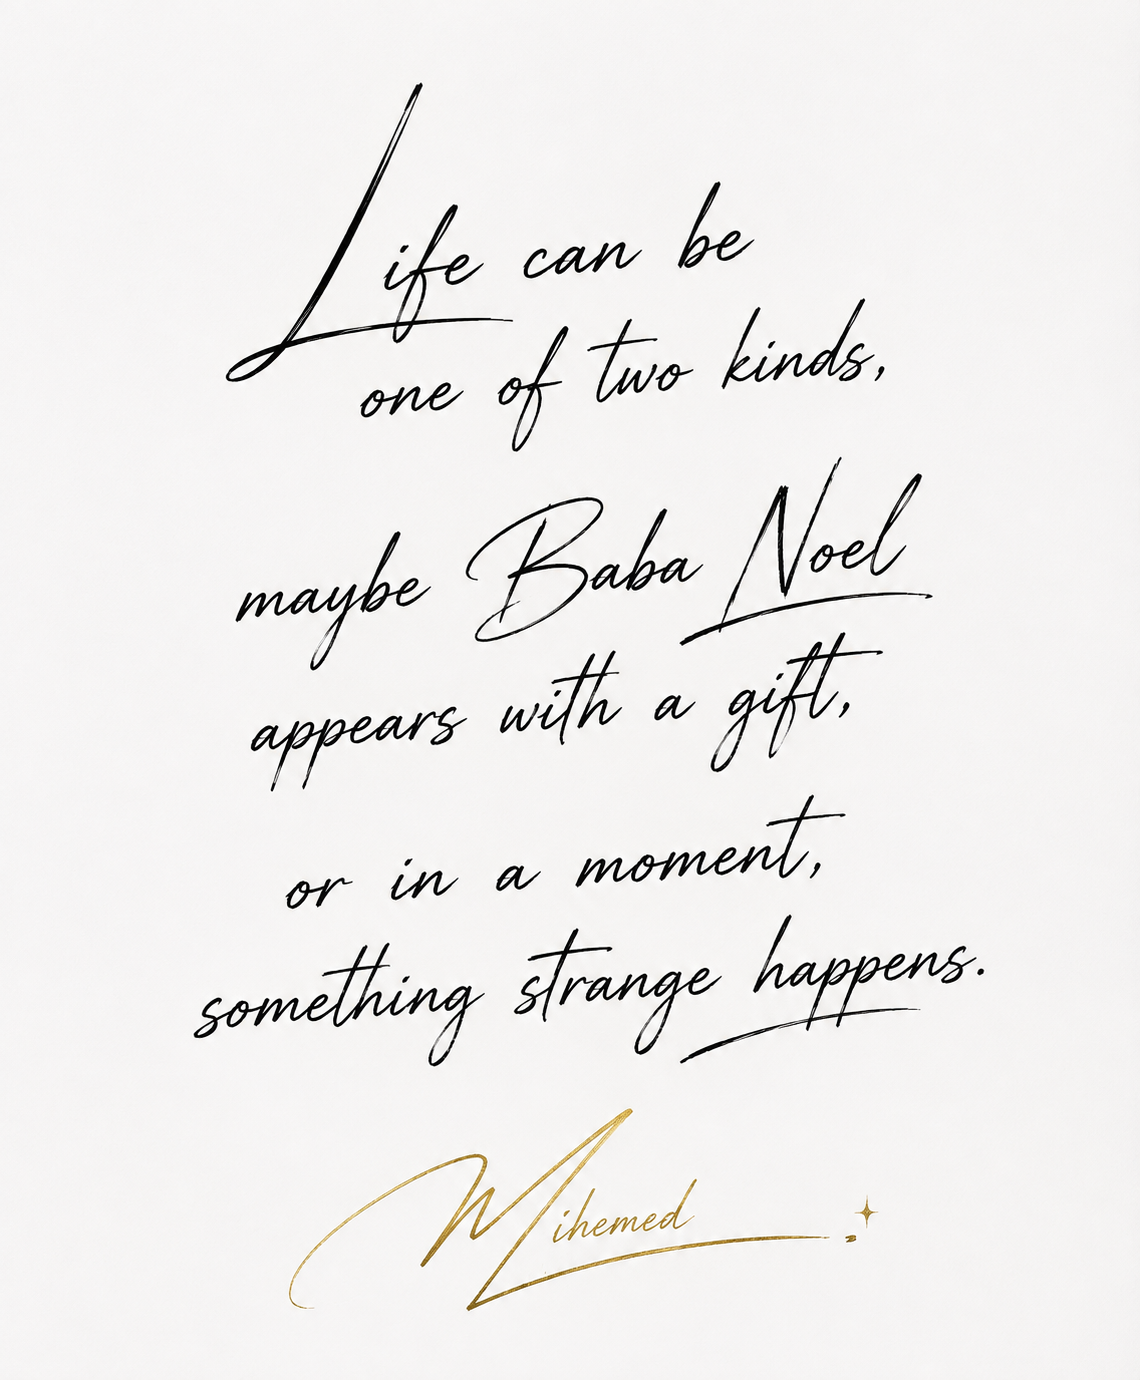 Life can be
one of two kinds,
maybe Baba Noel
appears with a gift,
or in a moment,
something strange happens.
Mihemed